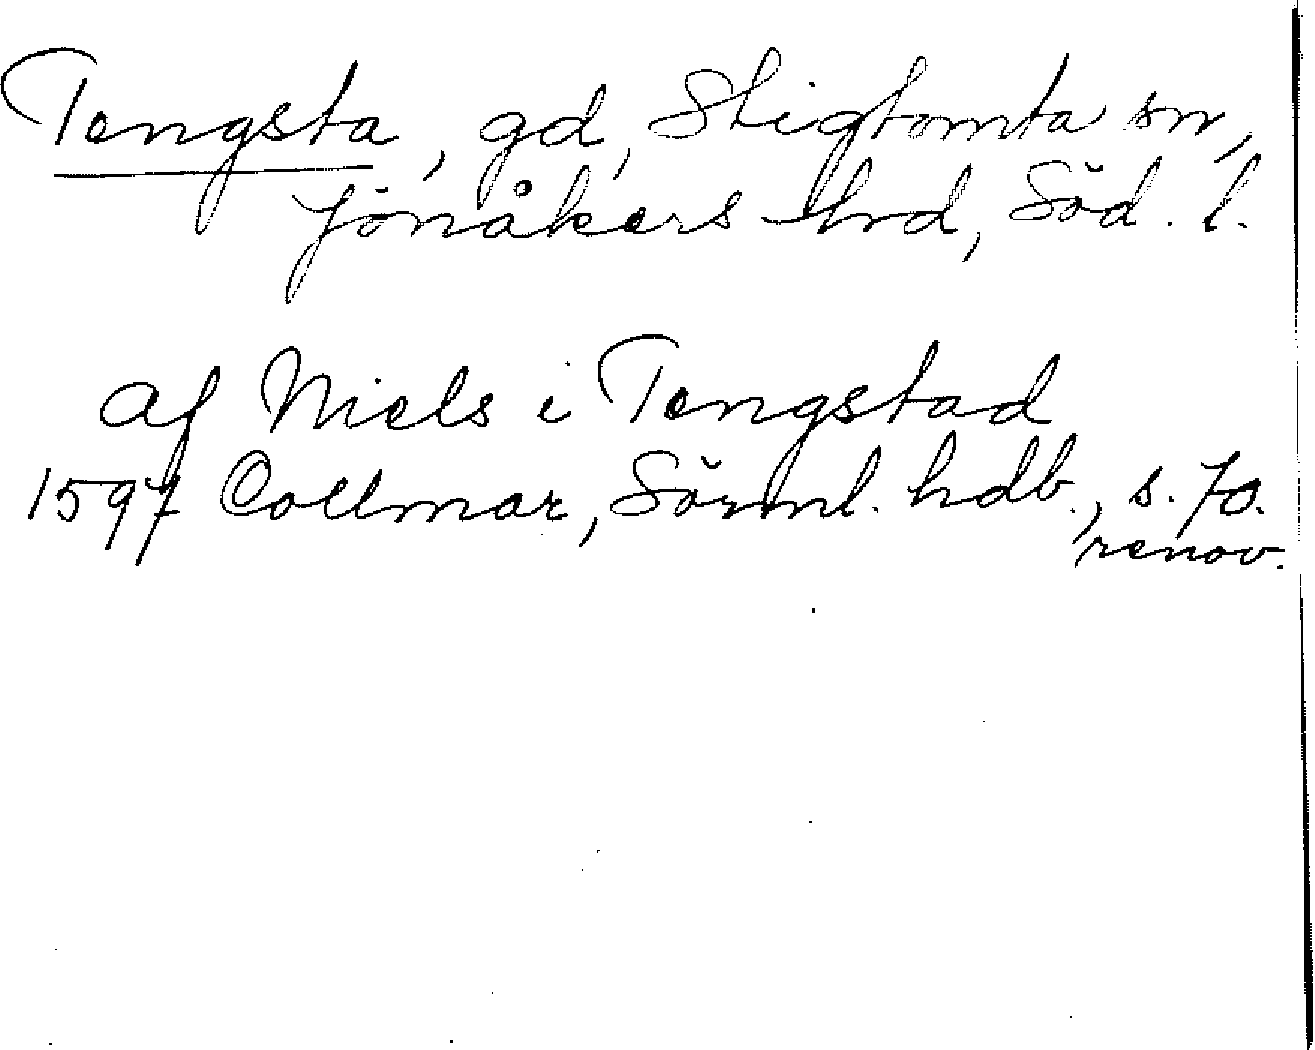 Tengsta, gd, Stigtomta sn,
Jönåkers hrd, Söd. l.
af Niels i Tengstad
1597 Collmar, Sörml. hdb., s. 70.
renov.